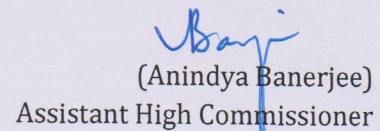 (Anindya Banerjee)
Assistant High Commissioner